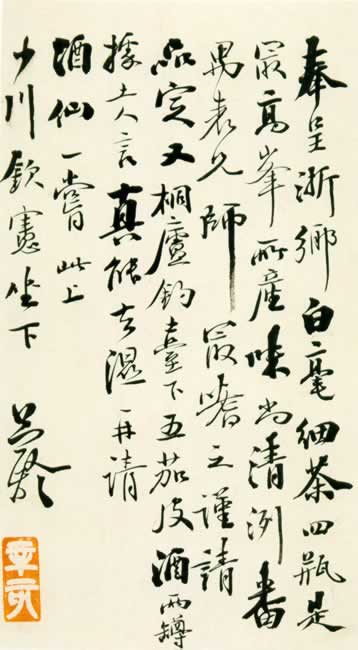 奉呈浙鄉白毫細茶四瓶是
最高峯所產味尚清洌番
禺袁兄師最嗜之謹請
品定又桐廬釣臺下五茄皮酒兩罇
據土人言真能去濕一并請
酒仙一嘗此上
少川欽憲坐下